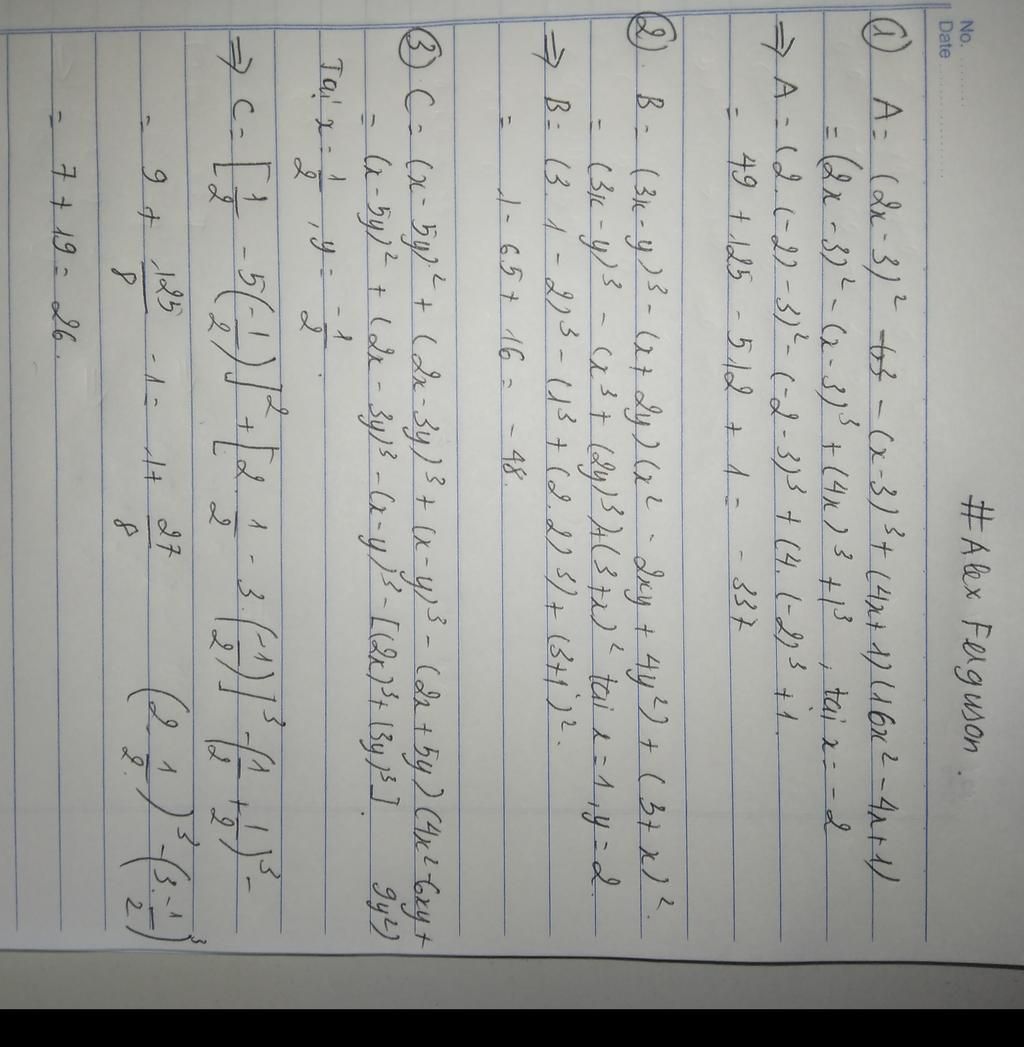 No.
Date
#Alex Ferguson.
① A = (2x - 3)² - (x - 3)³ + (4x + 1)(16x² - 4x + 1)
= (2x - 3)² - (x - 3)³ + (4x)³ + 1³, tại x = -2
⇒ A = (2.(-2) - 3)² - (-2 - 3)³ + (4.(-2)³ + 1.
= 49 + 125 - 512 + 1 = -337
②. B = (3x - y)³ - (x + 2y)(x² - 2xy + 4y²) + (3 + x)².
= (3x - y)³ - (x³ + (2y)³) + (3 + x)² tại x = 1, y = 2
⇒ B = (3.1 - 2)³ - (1³ + (2.2)³) + (3 + 1)².
= 1 - 65 + 16 = -48.
③. C = (x - 5y)² + (2x - 3y)³ + (x - y)³ - (2x + 5y)(4x² - 6xy + 9y²)
= (x - 5y)² + (2x - 3y)³ - (x - y)³ - [(2x)³ + (3y)³].
Tại x = 1/2, y = -1/2.
⇒ C = [1/2 - 5(-1/2)]² + [2.1/2 - 3.(-1/2)]³ - (1/2 + 1/2)³ -
(2.1/2)³ - (3.-1/2)³
= 9 + 125/8 - 1 - 1 + 27/8
= 7 + 19 = 26.